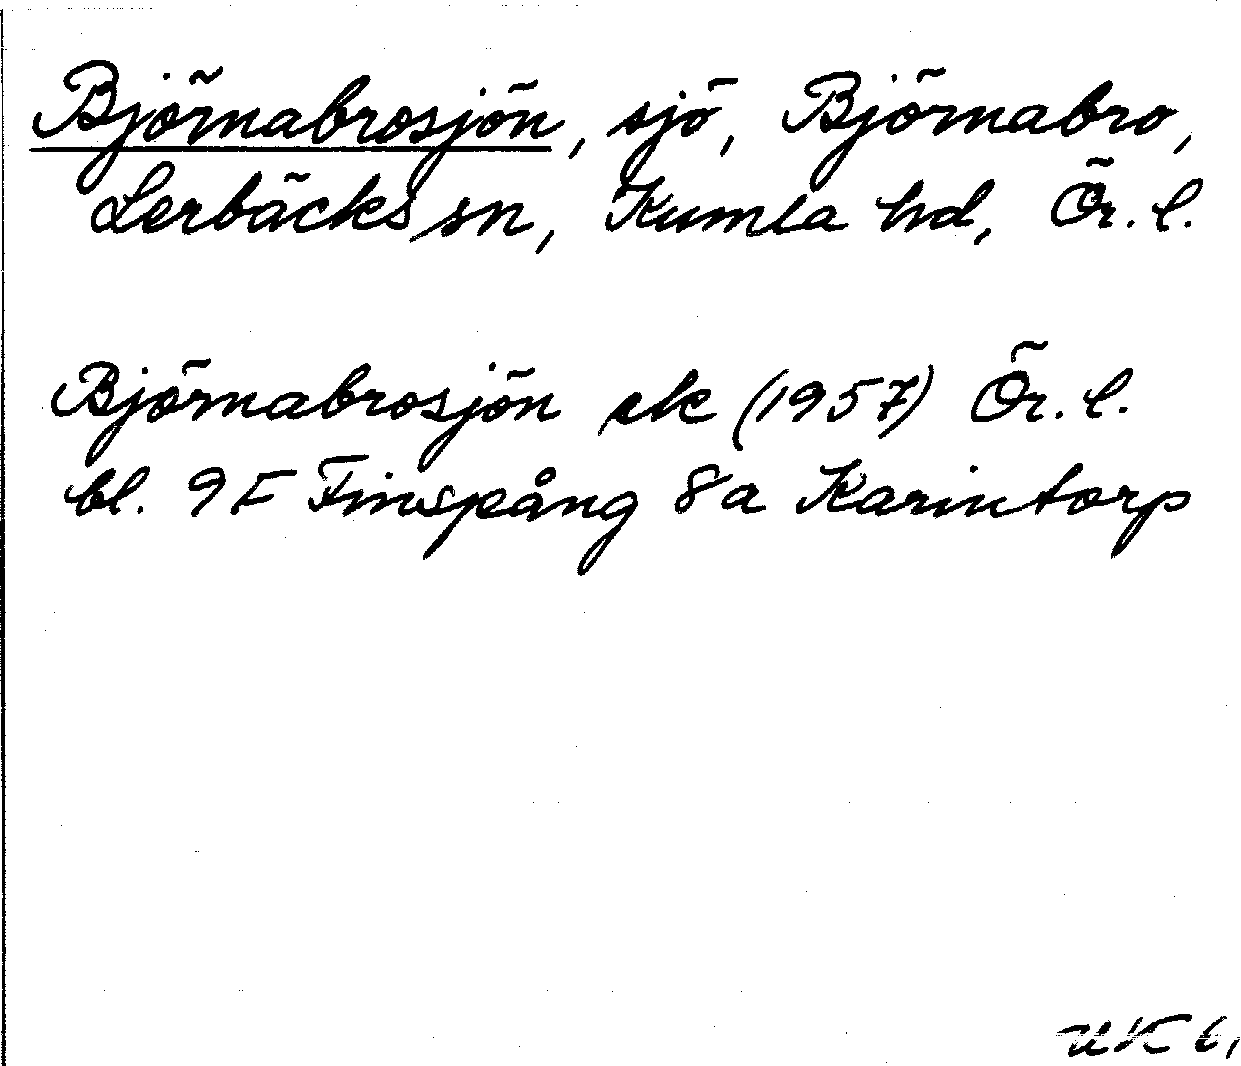 Björnabrosjön, sjö, Björnabro,
Lerbäcks sn, Kumla hd, Ör. l.
Björnabrosjön ek (1957) Ör. l.
bl. 9F Finspång 8a Karintorp